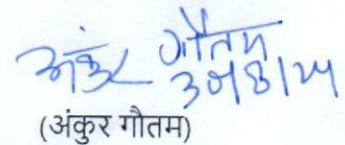 अंकुर गौतम
30/8/24
(अंकुर गौतम)